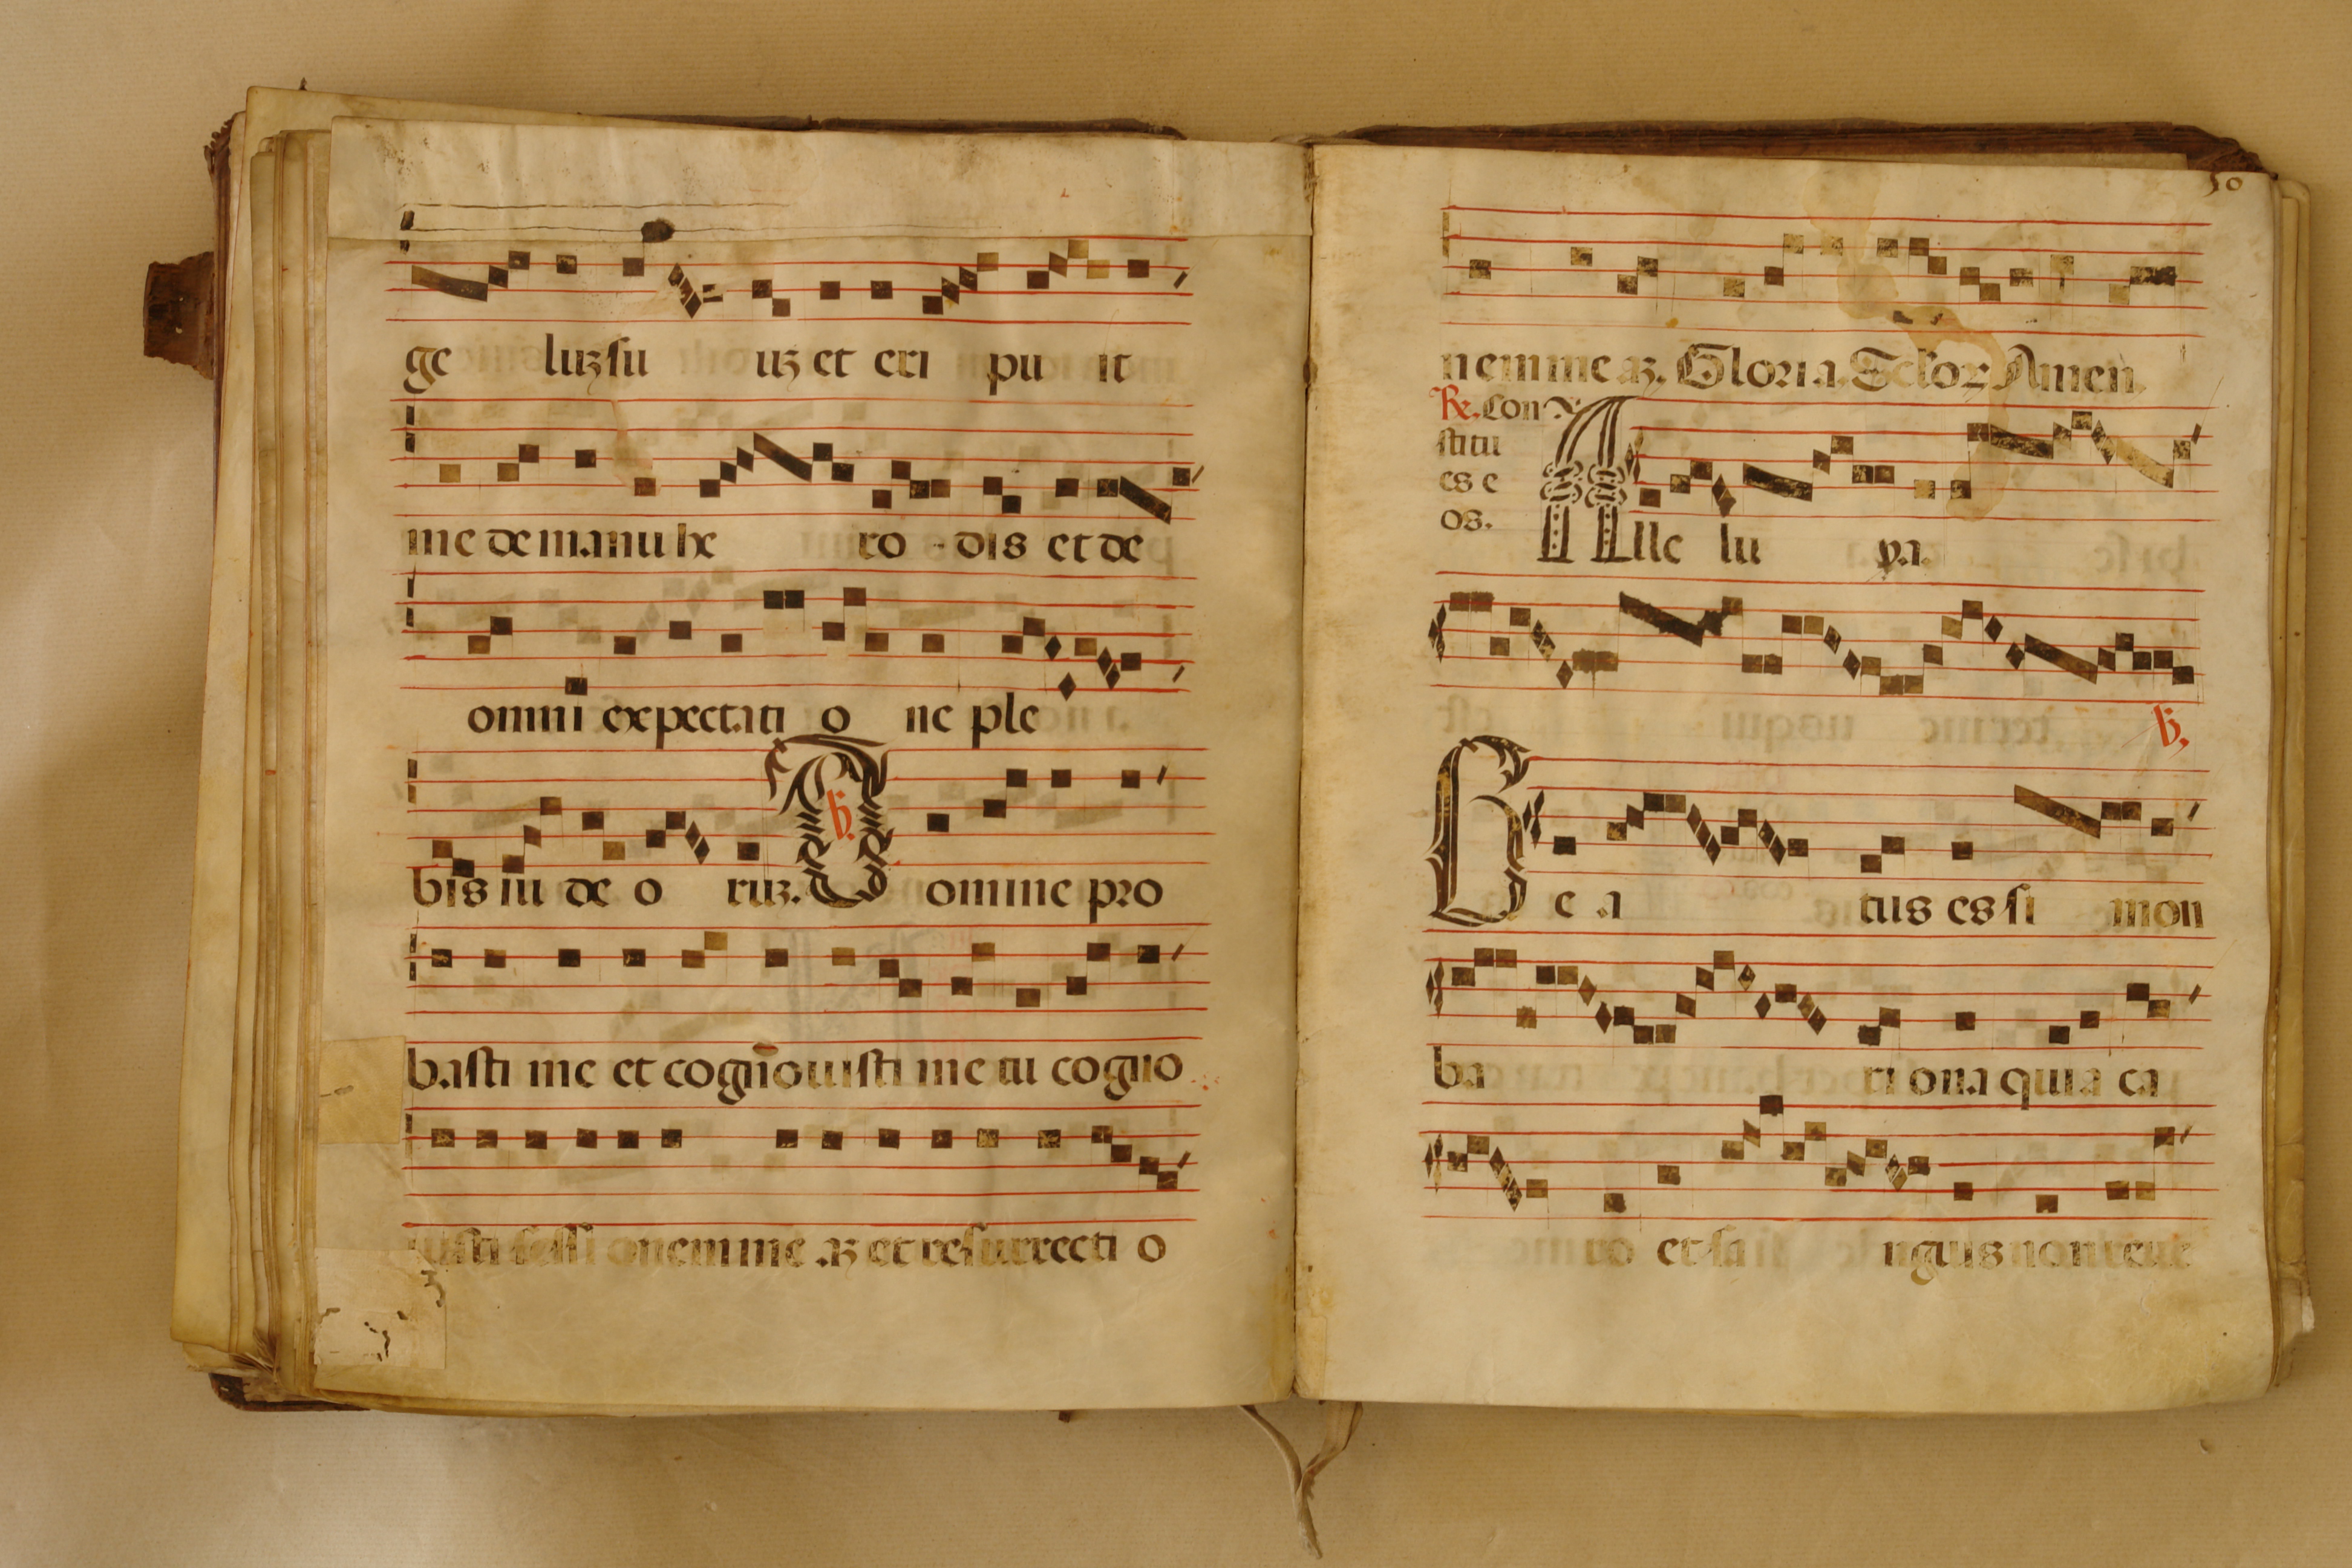 ge luꝫ su uꝫ et eri pu it
me de manu he ro - dis et de
omni expectati o ne ple
bis iu de o ruꝫ. ℣. D omine pro
basti me et cogño uisti me tu cogno
uisti sessi onem me aꝫ et resurrecti o
50
nem me aꝫ. Gloria. Seculoꝝ Amen.
℟. Con
stitu
es e
os.
A lle lu ya
℣.
B e a tus es si mon
ba ri ona quia ca
ro et sa nguis non reue